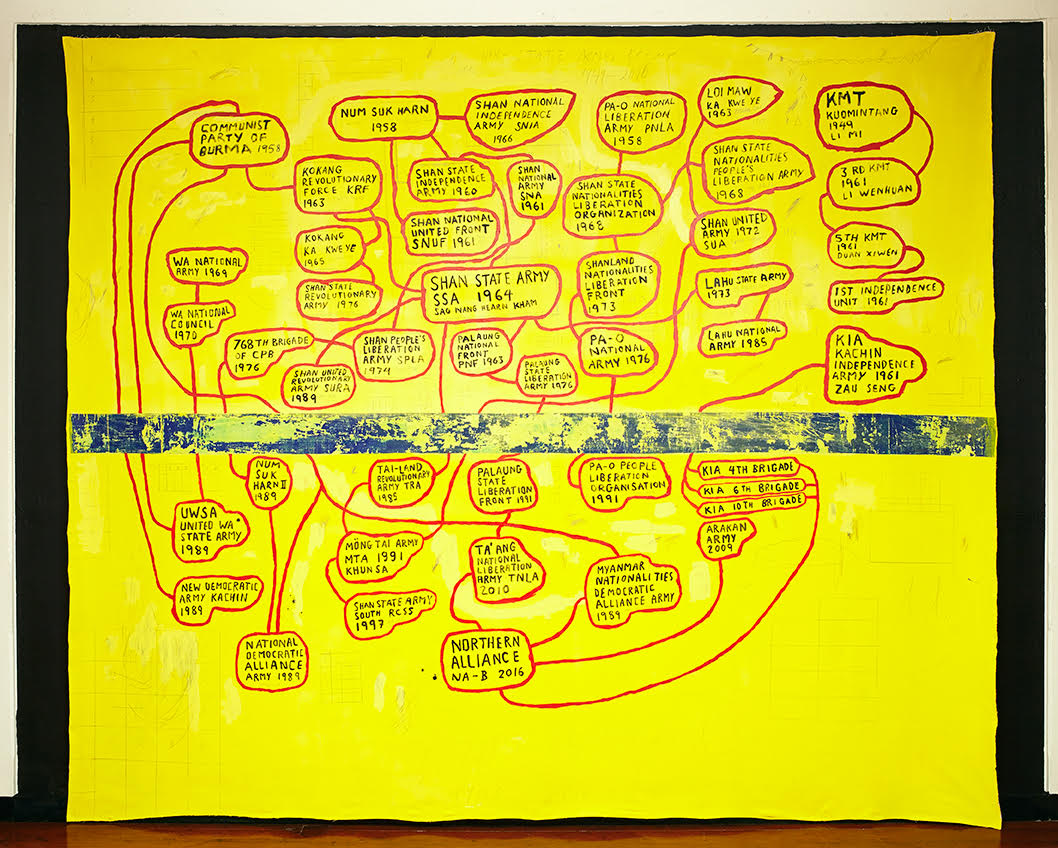 COMMUNIST
PARTY OF
BURMA 1958
NUM SUK HARN
1958
SHAN NATIONAL
INDEPENDENCE
ARMY SNIA
1966
PA-O NATIONAL
LIBERATION
ARMY PNLA
1958
LOI MAW
KA KWE YE
1963
KMT
KUOMINTANG
1949
LI MI
KOKANG
REVOLUTIONARY
FORCE KRF
1963
SHAN STATE
INDEPENDENCE
ARMY 1960
SHAN
NATIONAL
ARMY
SNA
1961
SHAN STATE
NATIONALITIES
LIBERATION
ORGANIZATION
1968
SHAN STATE
NATIONALITIES
PEOPLE'S
LIBERATION ARMY
1968
3RD KMT
1961
LI WENHUAN
KOKANG
KA KWE YE
1965
SHAN NATIONAL
UNITED FRONT
SNUF 1961
SHAN UNITED
ARMY 1972
SUA
5TH KMT
1961
DUAN XIWEN
WA NATIONAL
ARMY 1969
SHAN STATE
REVOLUTIONARY
ARMY 1976
SHAN STATE ARMY
SSA 1964
SAO NANG HEARN KHAM
SHANLAND
NATIONALITIES
LIBERATION
FRONT
1973
LAHU STATE ARMY
1973
1ST INDEPENDENCE
UNIT 1961
WA NATIONAL
COUNCIL
1970
768TH BRIGADE
OF CPB
1976
SHAN PEOPLE'S
LIBERATION
ARMY SPLA
1974
PALAUNG
NATIONAL
FRONT
PNF 1963
PALAUNG
STATE
LIBERATION
ARMY 1976
PA-O
NATIONAL
ARMY 1976
LAHU NATIONAL
ARMY 1985
KIA
KACHIN
INDEPENDENCE
ARMY 1961
ZAU SENG
SHAN UNITED
REVOLUTIONARY
ARMY SURA
1989
NUM
SUK
HARN II
1989
TAI-LAND
REVOLUTIONARY
ARMY TRA
1985
PALAUNG
STATE
LIBERATION
FRONT 1991
PA-O PEOPLE
LIBERATION
ORGANISATION
1991
KIA 4TH BRIGADE
KIA 6TH BRIGADE
KIA 10TH BRIGADE
UWSA
UNITED WA
STATE ARMY
1989
MÖNG TAI ARMY
MTA 1991
KHUN SA
TA'ANG
NATIONAL
LIBERATION
ARMY TNLA
2010
MYANMAR
NATIONALITIES
DEMOCRATIC
ALLIANCE ARMY
1989
ARAKAN
ARMY
2009
NEW DEMOCRATIC
ARMY KACHIN
1989
SHAN STATE ARMY
SOUTH RCSS
1997
NATIONAL
DEMOCRATIC
ALLIANCE
ARMY 1989
NORTHERN
ALLIANCE
NA-B 2016